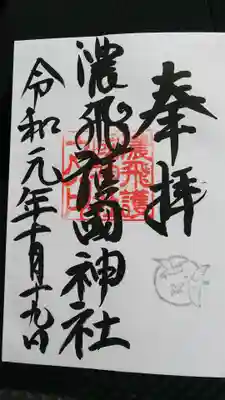 奉拝
濃飛護國神社
令和元年十月十九日